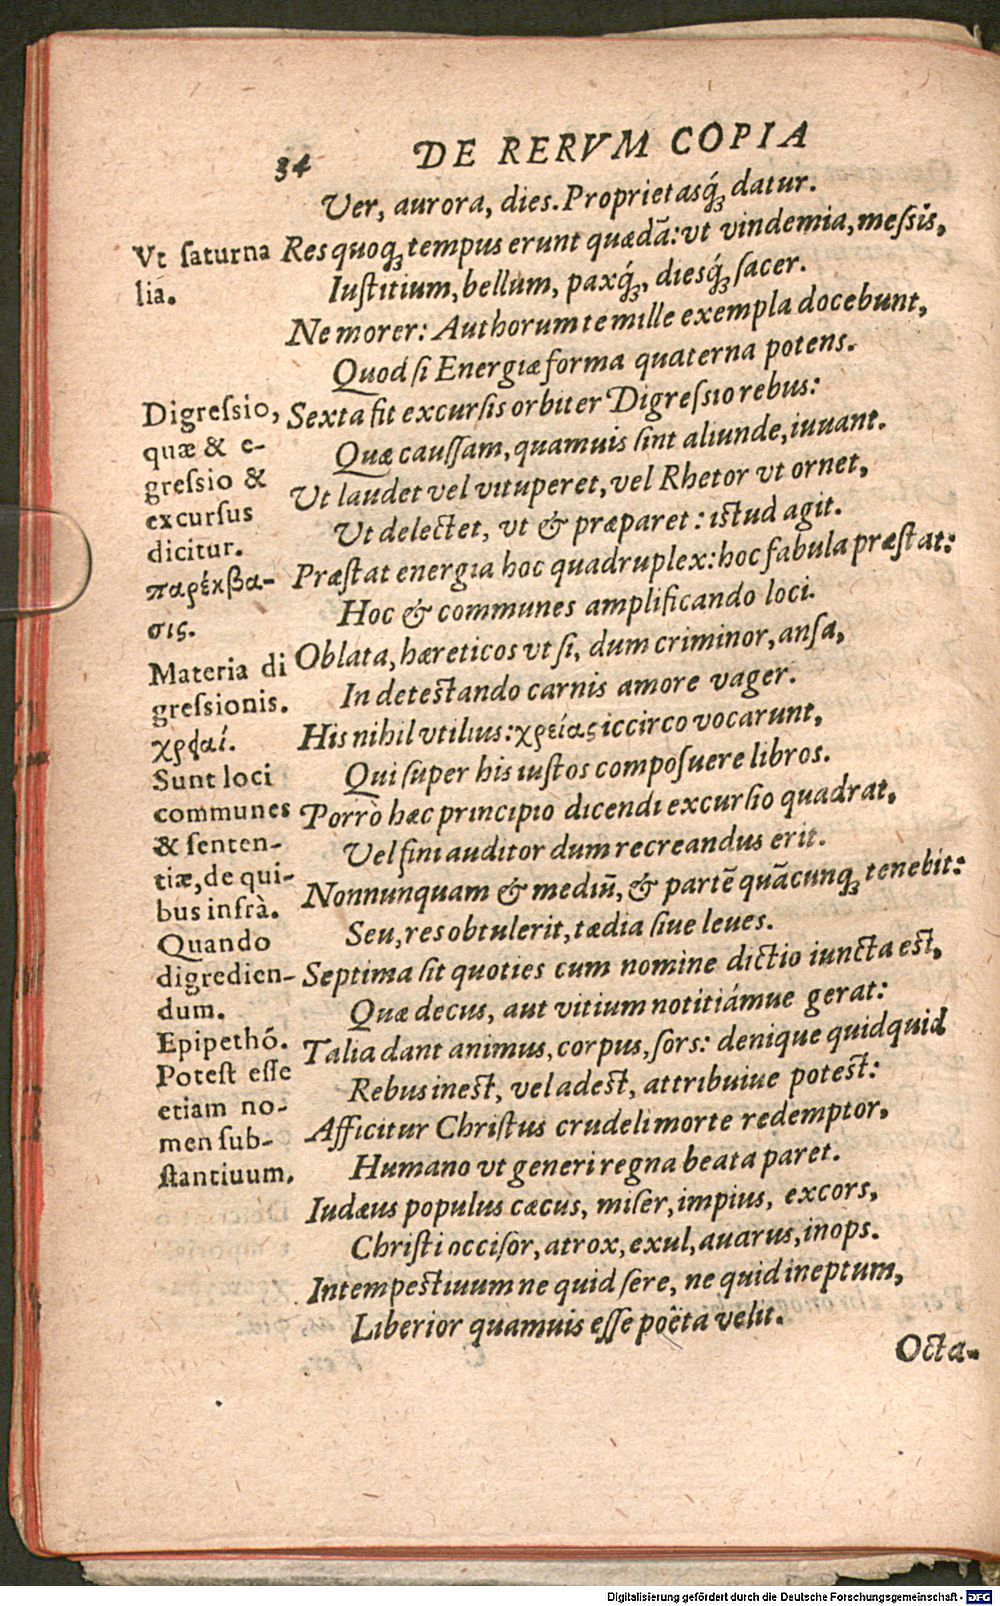 34 DE RERVM COPIA
Ver, aurora, dies. Proprietasq́ꝫ datur.
Res quoqꝫ tempus erunt quædā: vt vindemia, meſsis,
Iuſtitium, bellum, paxq́ꝫ, diesq́ꝫ ſacer.
Ne morer: Authorum te mille exempla docebunt,
Quod ſi Energiæ forma quaterna potens.
Sexta fit excurſis orbiter Digreſsio rebus:
Quæ cauſſam, quamuis ſint aliunde, iuuant.
Ut laudet vel vituperet, vel Rhetor vt ornet,
Ut delectet, vt & præparet: iſtud agit.
Præſtat energia hoc quadruplex: hoc fabula præſtat:
Hoc & communes amplificando loci.
Oblata, hæreticos vt ſi, dum criminor, anſa,
In deteſtando carnis amore vager.
His nihil vtilius: χρείας iccirco vocarunt,
Qui ſuper his iuſtos compoſuere libros.
Porrò hæc principio dicendi excurſio quadrat,
Vel fini auditor dum recreandus erit.
Nonnunquam & mediū, & partē quācunqꝫ tenebit:
Seu, res obtulerit, tædia ſiue leues.
Septima ſit quoties cum nomine dictio iuncta eſt,
Quæ decus, aut vitium notitiámue gerat:
Talia dant animus, corpus, ſors: denique quidquid
Rebus ineſt, vel adeſt, attribuiue poteſt:
Afficitur Chriſtus crudeli morte redemptor,
Humano vt generi regna beata paret.
Iudæus populus cæcus, miſer, impius, excors,
Chriſti occiſor, atrox, exul, auarus, inops.
Intempeſtiuum ne quid ſere, ne quid ineptum,
Liberior quamuis eſſe poëta velit.
Octa-
Vt ſaturna
lia.
Digreſsio,
quæ & e-
greſsio &
excurſus
dicitur.
παρέκβα-
σις.
Materia di
greſsionis.
Sunt loci
communes
& ſenten-
tiæ, de qui-
bus infrà.
Quando
digredien-
dum.
Epipethó.
Poteſt eſſe
etiam no-
men ſub-
ſtantiuum.
Digitalisierung gefördert durch die Deutsche Forschungsgemeinschaft - DFG